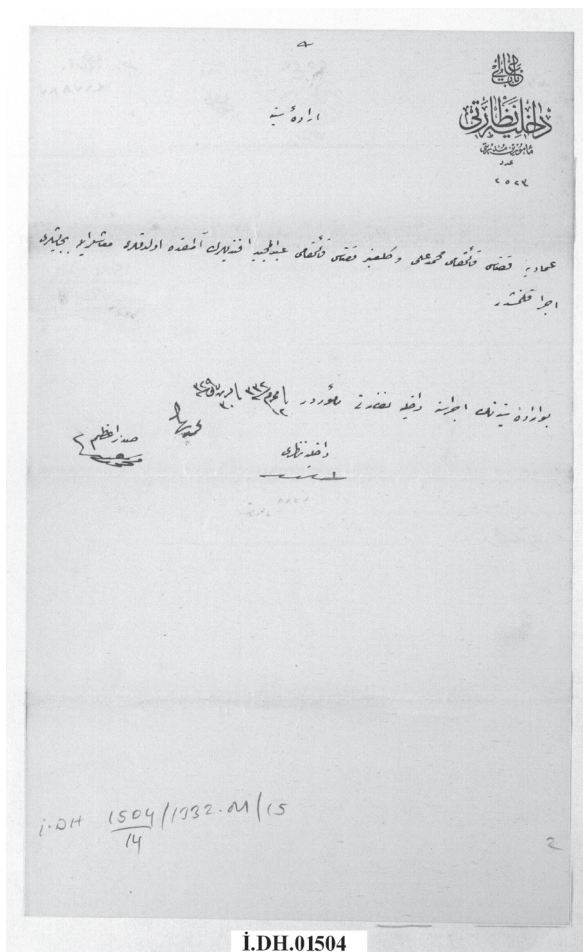 باب عالی
داخلیه نظارتی
مأمورین مدیریتی
عدد
٢٥٢٣
ارادۀ سنیه
عمادیه قضاسی قائمقامی محمد علی و قضاسی قائمقامی عبدالمجید افندیلرك آلمقده اولدقلری معاشلریله بجایشلری
اجرا قلنمشدر
بو ارادۀ سنیه نك اجراسنه داخلیه نظارتی مأموردر ١٢ محرم ٣٣٢
داخلیه ناظری
صدراعظم
İ.DH 1504/1332.M/15
14
2
İ.DH.01504